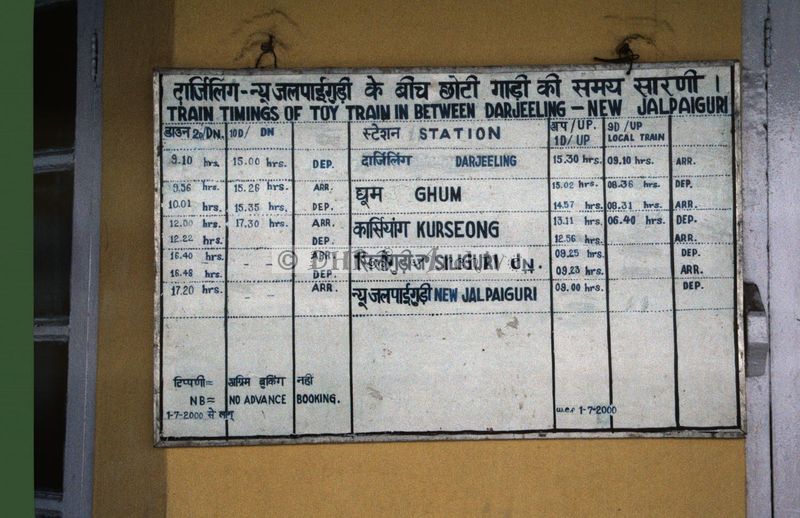 दार्जिलिंग-न्यू जलपाईगुड़ी के बीच छोटी गाड़ी की समय सारणी ।
TRAIN TIMINGS OF TOY TRAIN IN BETWEEN DARJEELING - NEW JALPAIGURI
डाउन 2D/DN. 10D/ DN स्टेशन STATION अप/UP. 1D/UP 9D/UP LOCAL TRAIN
9.10 hrs. 15.00 hrs. DEP. दार्जिलिंग DARJEELING 15.30 hrs. 09.10 hrs. ARR.
9.56 hrs. 15.26 hrs. ARR. घूम GHUM 15.02 hrs. 08.36 hrs. DEP.
10.01 hrs. 15.35 hrs. DEP. 14.57 hrs. 08.31 hrs. ARR.
12.00 hrs. 17.30 hrs. ARR. कार्सियांग KURSEONG 13.11 hrs. 06.40 hrs. DEP.
12.22 hrs. DEP. 12.56 hrs. ARR.
16.40 hrs. - - ARR. सिलीगुड़ी ज SILIGURI JN. 09.25 hrs. - - DEP.
16.48 hrs. - - DEP. 09.23 hrs. - - ARR.
17.20 hrs. - - ARR. न्यू जलपाईगुड़ी NEW JALPAIGURI 09.00 hrs. - - DEP.
टिप्पणी= अग्रिम बुकिंग नहीं
NB= NO ADVANCE BOOKING.
1-7-2000 से लागू w.e.f 1-7-2000